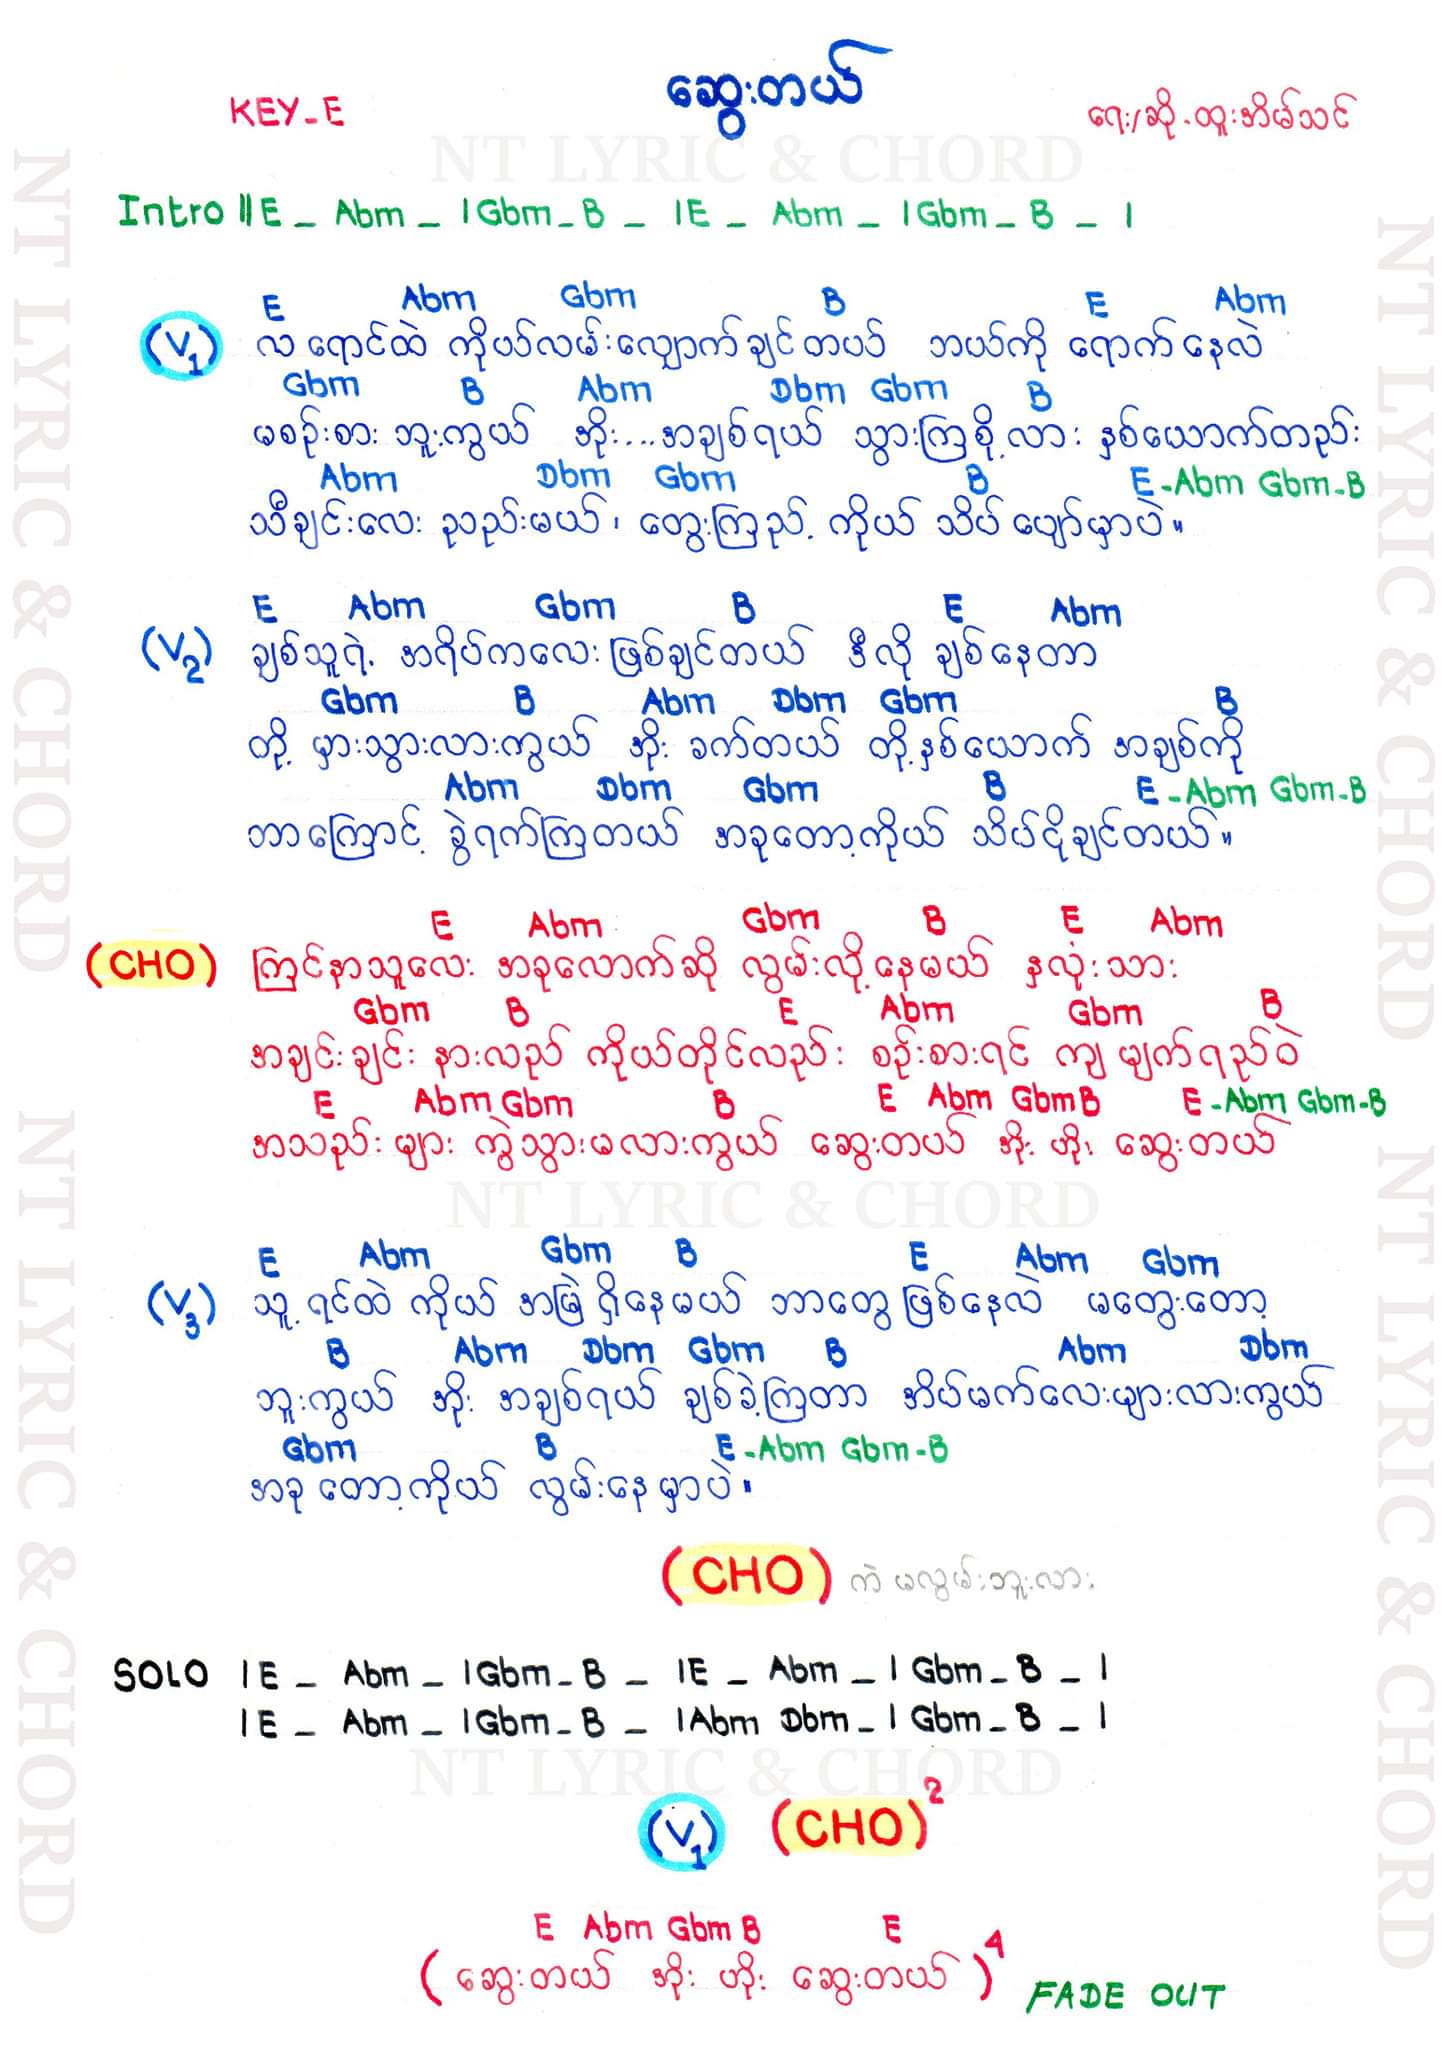 ဆွေးတယ်
KEY-E
ရေး/ဆို-ထူးအိမ်သင်
NT LYRIC & CHORD
Intro ||E _ Abm _ |Gbm _ B _ |E _ Abm _ |Gbm _ B _ |
E Abm Gbm B E Abm
(V1) လရောင်ထဲ ကိုယ်လမ်းလျှောက်ချင်တယ် ဘယ်ကို ရောက်နေလဲ
Gbm B Abm Dbm Gbm B
မစဉ်းစားဘူးကွယ် အိုး...အချစ်ရယ် သွားကြစို့လား နှစ်ယောက်တည်း
Abm Dbm Gbm B E-Abm Gbm-B
သီချင်းလေး ညည်းမယ်၊ တွေးကြည့် ကိုယ် သိပ်ပျော်မှာပဲ။
E Abm Gbm B E Abm
(V2) ချစ်သူရဲ့ အရိပ်ကလေးဖြစ်ချင်တယ် ဒီလို ချစ်နေတာ
Gbm B Abm Dbm Gbm B
တို့ မှားသွားလားကွယ် အိုး ခက်တယ် တို့နှစ်ယောက် အချစ်ကို
Abm Dbm Gbm B E-Abm Gbm-B
ဘာကြောင့် ခွဲရက်ကြတယ် အခုတော့ကိုယ် သိပ်ငိုချင်တယ်။
E Abm Gbm B E Abm
(CHO) ကြင်နာသူလေး အခုလောက်ဆို လွမ်းလို့နေမယ် နှလုံးသား
Gbm B E Abm Gbm B
အချင်းချင်း နားလည် ကိုယ်တိုင်လည်း စဉ်းစားရင် ကျ မျက်ရည်ဝဲ
E Abm Gbm B E Abm Gbm B E-Abm Gbm-B
အသည်းများ ကွဲသွားမလားကွယ် ဆွေးတယ် အိုး ဟိုး ဆွေးတယ်
NT LYRIC & CHORD
E Abm Gbm B E Abm Gbm
(V3) သူ့ရင်ထဲ ကိုယ် အမြဲ ရှိနေမယ် ဘာတွေ ဖြစ်နေလဲ မတွေးတော့
B Abm Dbm Gbm B Abm Dbm
ဘူးကွယ် အိုး အချစ်ရယ် ချစ်ခဲ့ကြတာ အိပ်မက်လေးများလားကွယ်
Gbm B E-Abm Gbm-B
အခုတော့ကိုယ် လွမ်းနေမှာပဲ။
(CHO) ကဲ မလွမ်းဘူးလား
SOLO |E _ Abm _ |Gbm _ B _ |E _ Abm _ |Gbm _ B _ |
|E _ Abm _ |Gbm _ B _ |Abm Dbm _ |Gbm _ B _ |
NT LYRIC & CHORD
(V1) (CHO)2
E Abm Gbm B E
(ဆွေးတယ် အိုး ဟိုး ဆွေးတယ်)4
FADE OUT
NT LYRIC & CHORD
NT LYRIC & CHORD
NT LYRIC & CHORD
NT LYRIC & CHORD